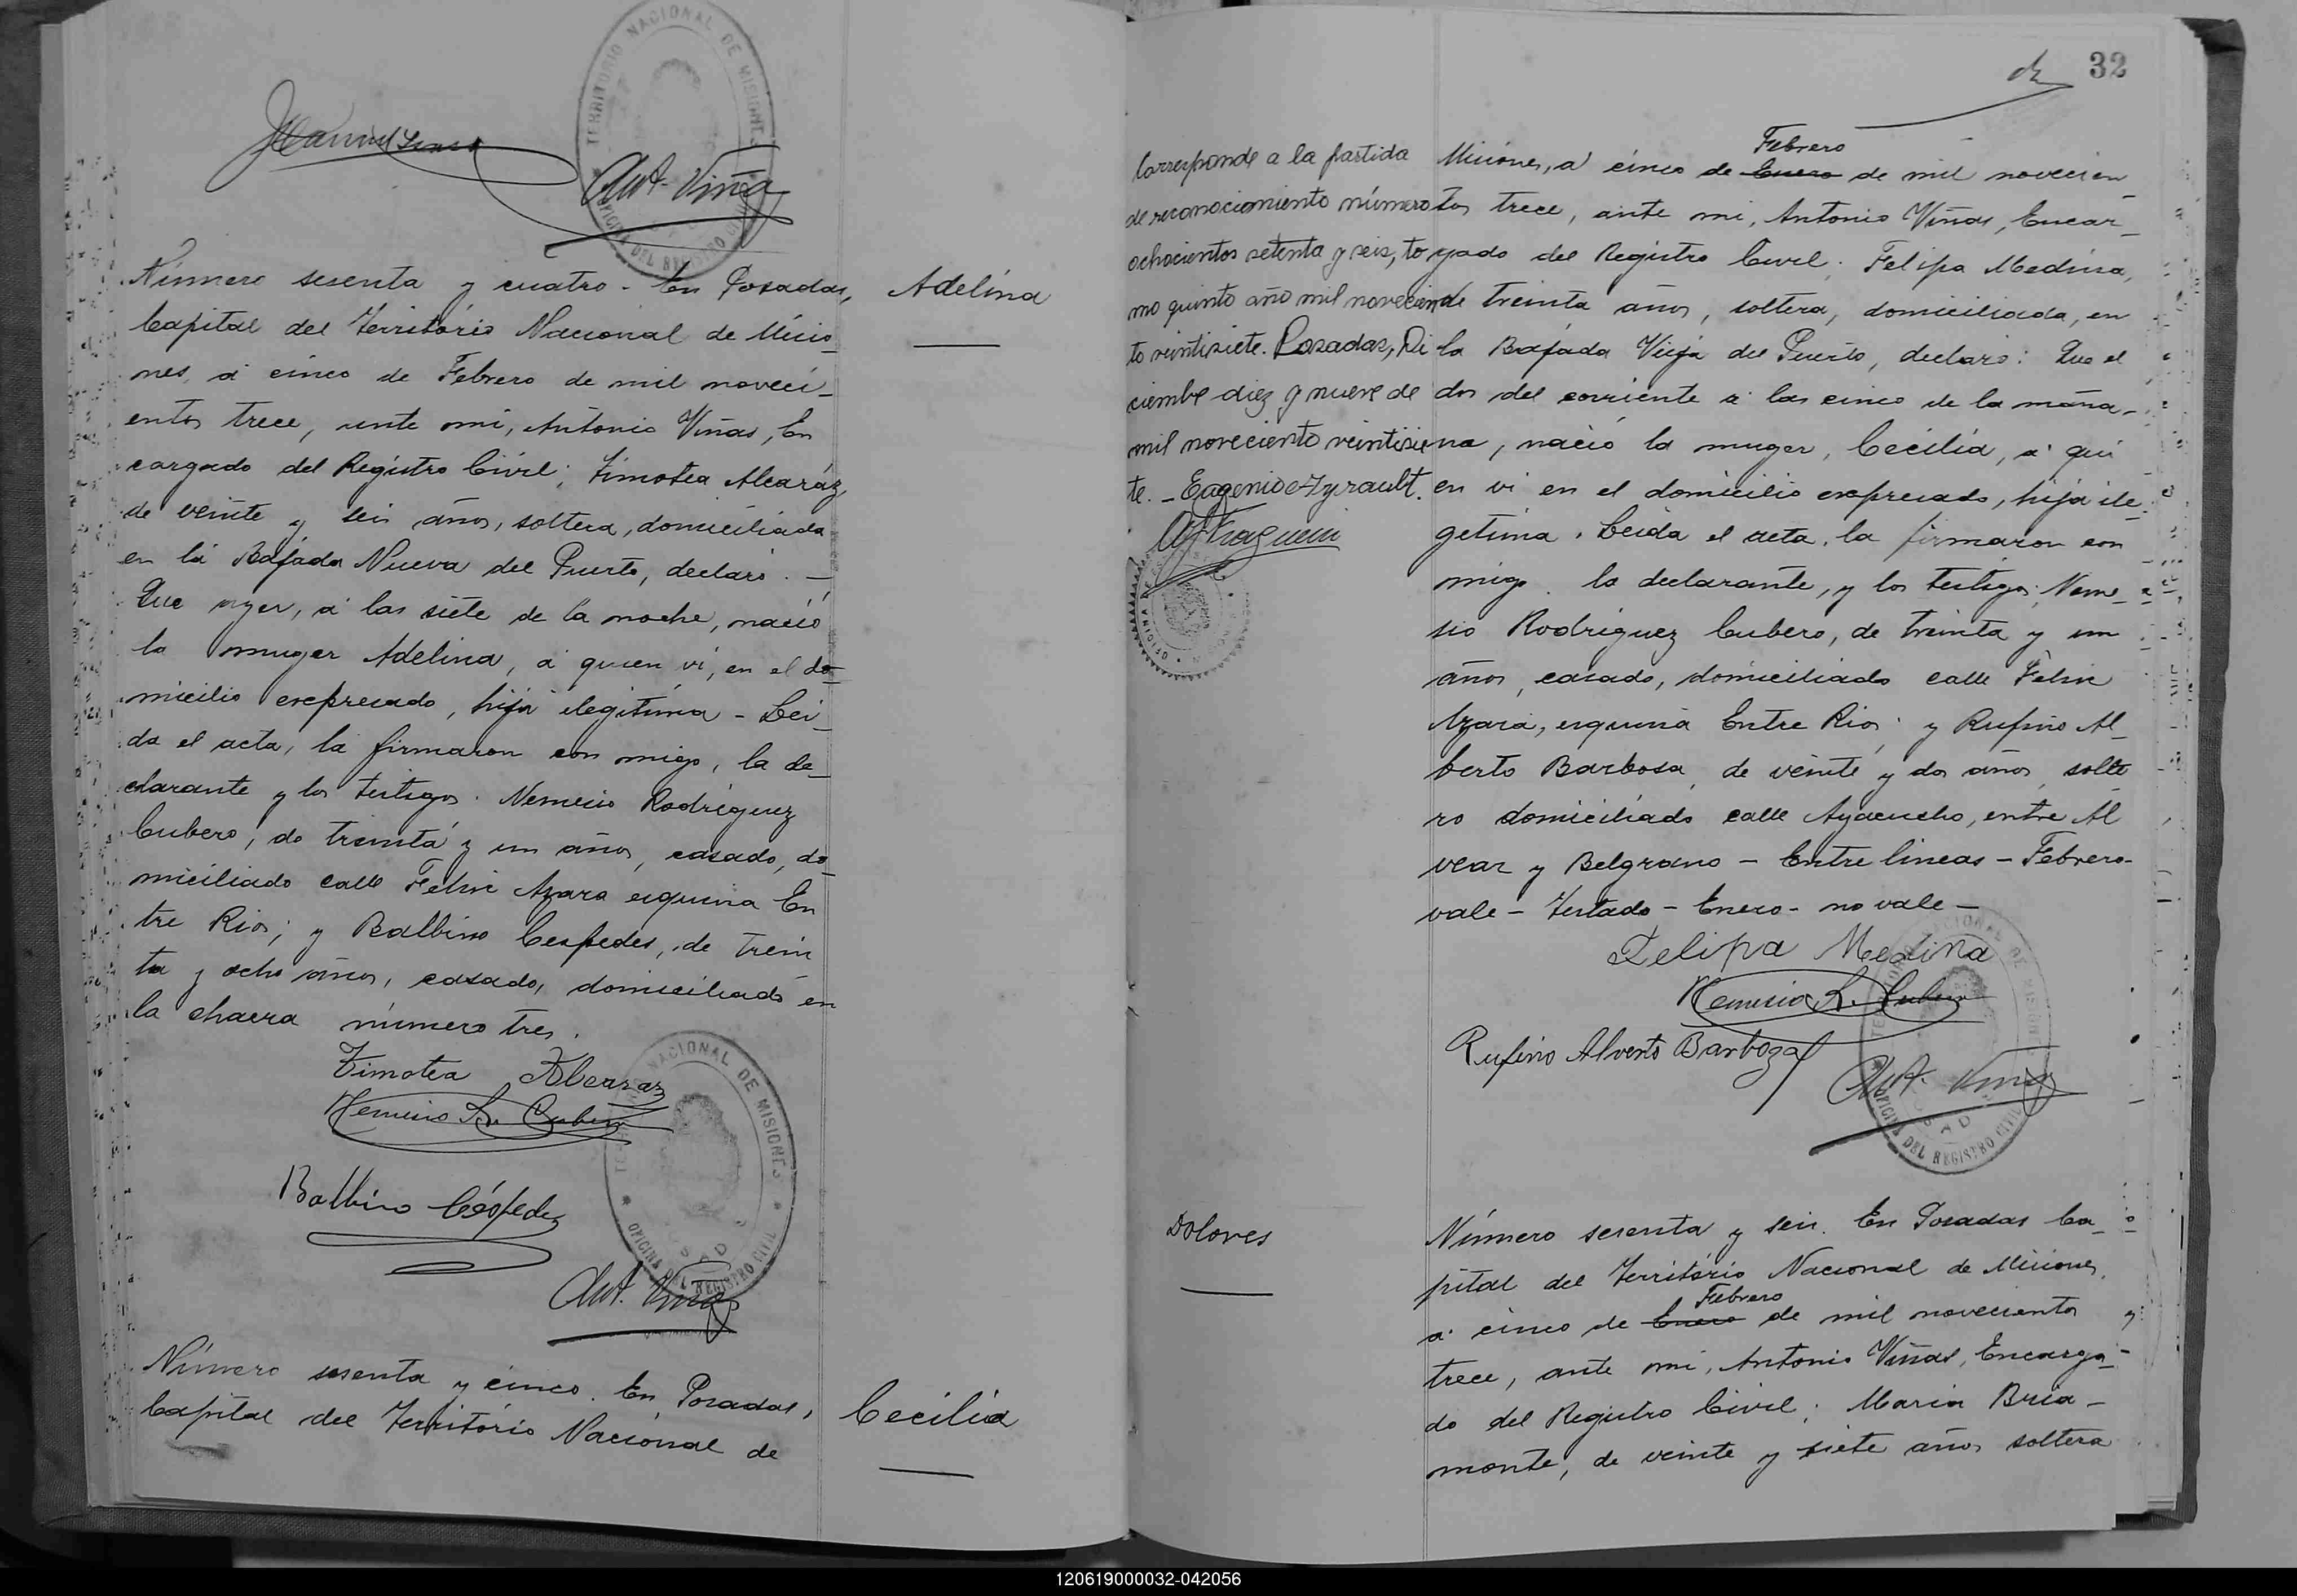 TERRITORIO NACIONAL DE MISIONES
OFICINA DEL REGISTRO CIVIL
Ant. Viñas
Número sesenta y cuatro - En Posadas,
Capital del Território Nacional de Misio_
nes, á cinco de Febrero de mil noveci_
entos trece, ante mi, António Viñas, En
cargado del Registro Civil; Timotea Alcaráz,
de veinte y seis años, soltera, domiciliada
en la Bajada Nueva del Puerto, declaró. —
Que ayer, á las siete de la noche, nació
la muger Adelina, á quien vi, en el do_
micilio expresado, hija ilegitima - Lei_
da el acta, la firmaron con migo, la de_
clarante y los testigos. Nemesio Rodríguez
Cubero, de treinta y un años, casado, do_
miciliado calle Felix Azara esquina En
tre Rios; y Balbino Cespedes, de trein
ta y ocho años, casado, domiciliado en
la chacra número tres.
Timotea Alcaraz
Nemesio R. Cubero
Balbino Céspedes
TERRITORIO NACIONAL DE MISIONES
OFICINA DEL REGISTRO CIVIL
Ant. Viñas
Número sesenta y cinco. En Posadas,
Capital del Território Nacional de
Adelina
Cecilia
32
Corresponde a la partida
de reconocimiento número
ochocientos setenta y seis, to
mo quinto año mil novecien
to veintisiete. Posadas, Di
ciembe diez y nueve de
mil noveciento veintisie
te. - Eugenio Ayrault.
Febrero
Misiones, á cinco de Enero de mil novecien_
tos trece, ante mi, Antonio Viñas, Encar_
gado del Registro Civil; Felipa Medina,
de treinta años, soltera, domiciliada, en
la Bajada Vieja del Puerto, declaró: Que el
dos del corriente á las cinco de la maña_
na, nació la muger, Cecilia, á qui
en vi en el domicilio expresado, hija ile_
getima. Leida el acta, la firmaron con
migo la declarante, y los testigos; Neme_
sio Rodriguez Cubero, de treinta y un
años, casado, domiciliado calle Felix
Azara, esquina Entre Rios; y Rufino Al_
berto Barbosa, de veinte y dos años, solte
ro domiciliado calle Ayacucho, entre Al
vear y Belgrano - Entre lineas - Febrero-
vale - Testado - Enero - no vale -
Felipa Medina
Nemesio R. Cubero
Rufino Alverto Barboza
Ant. Viñas
OFICINA DEL REGISTRO CIVIL
Dolores
Número sesenta y seis. En Posadas Ca_
pital del Território Nacional de Misiones,
Febrero
á cinco de Enero de mil novecientos
trece, ante mi, Antonio Viñas, Encarga_
do del Registro Civil; Maria Bria_
monte, de veinte y siete años soltera
120619000032-042056